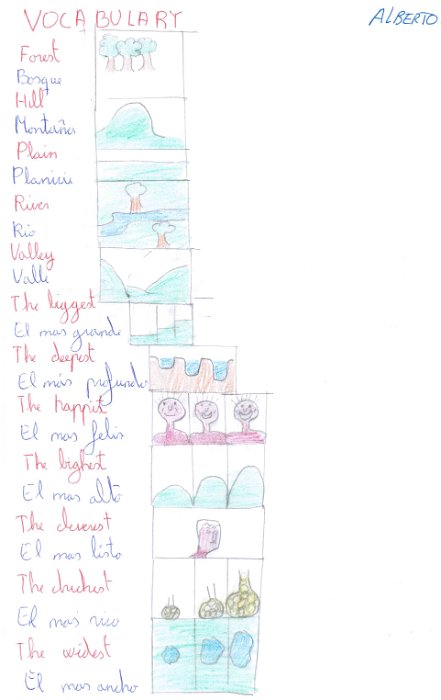 VOCABULARY
ALBERTO
Forest
Bosque
Hill
Montaña
Plain
Planicie
River
Rio
Valley
Valle
The biggest
El mas grande
The deepest
El más profundo
The happist
El mas felis
The highest
El mas alto
The cleverest
El mas listo
The
El más rico
The widest
El mas ancho